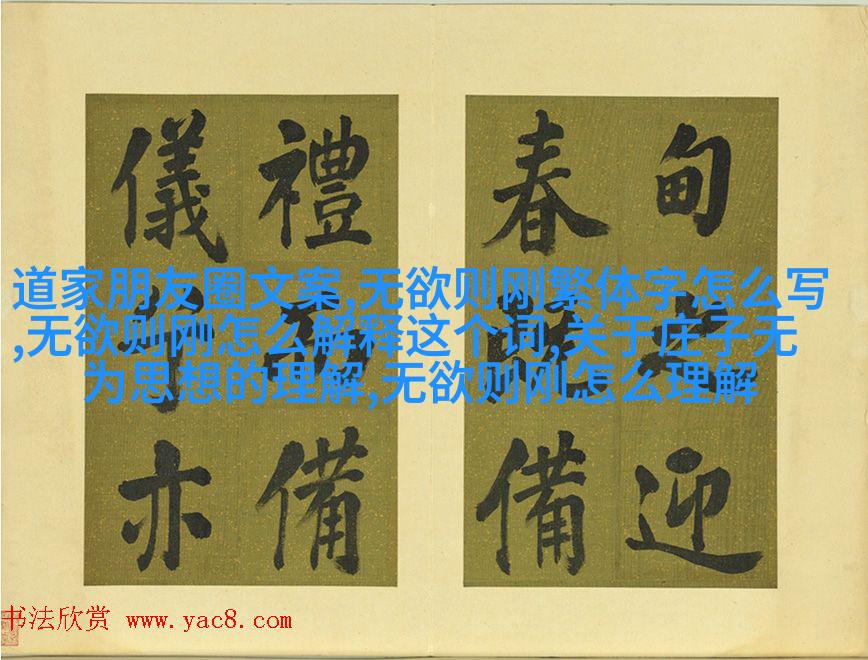 甸迎
春備
禮備
儀亦
道家朋友圈文案,无欲则刚繁体字怎么写
,无欲则刚怎么解释这个词,关于庄子无
为思想的理解,无欲则刚怎么理解
书法欣赏 www.yac8.com